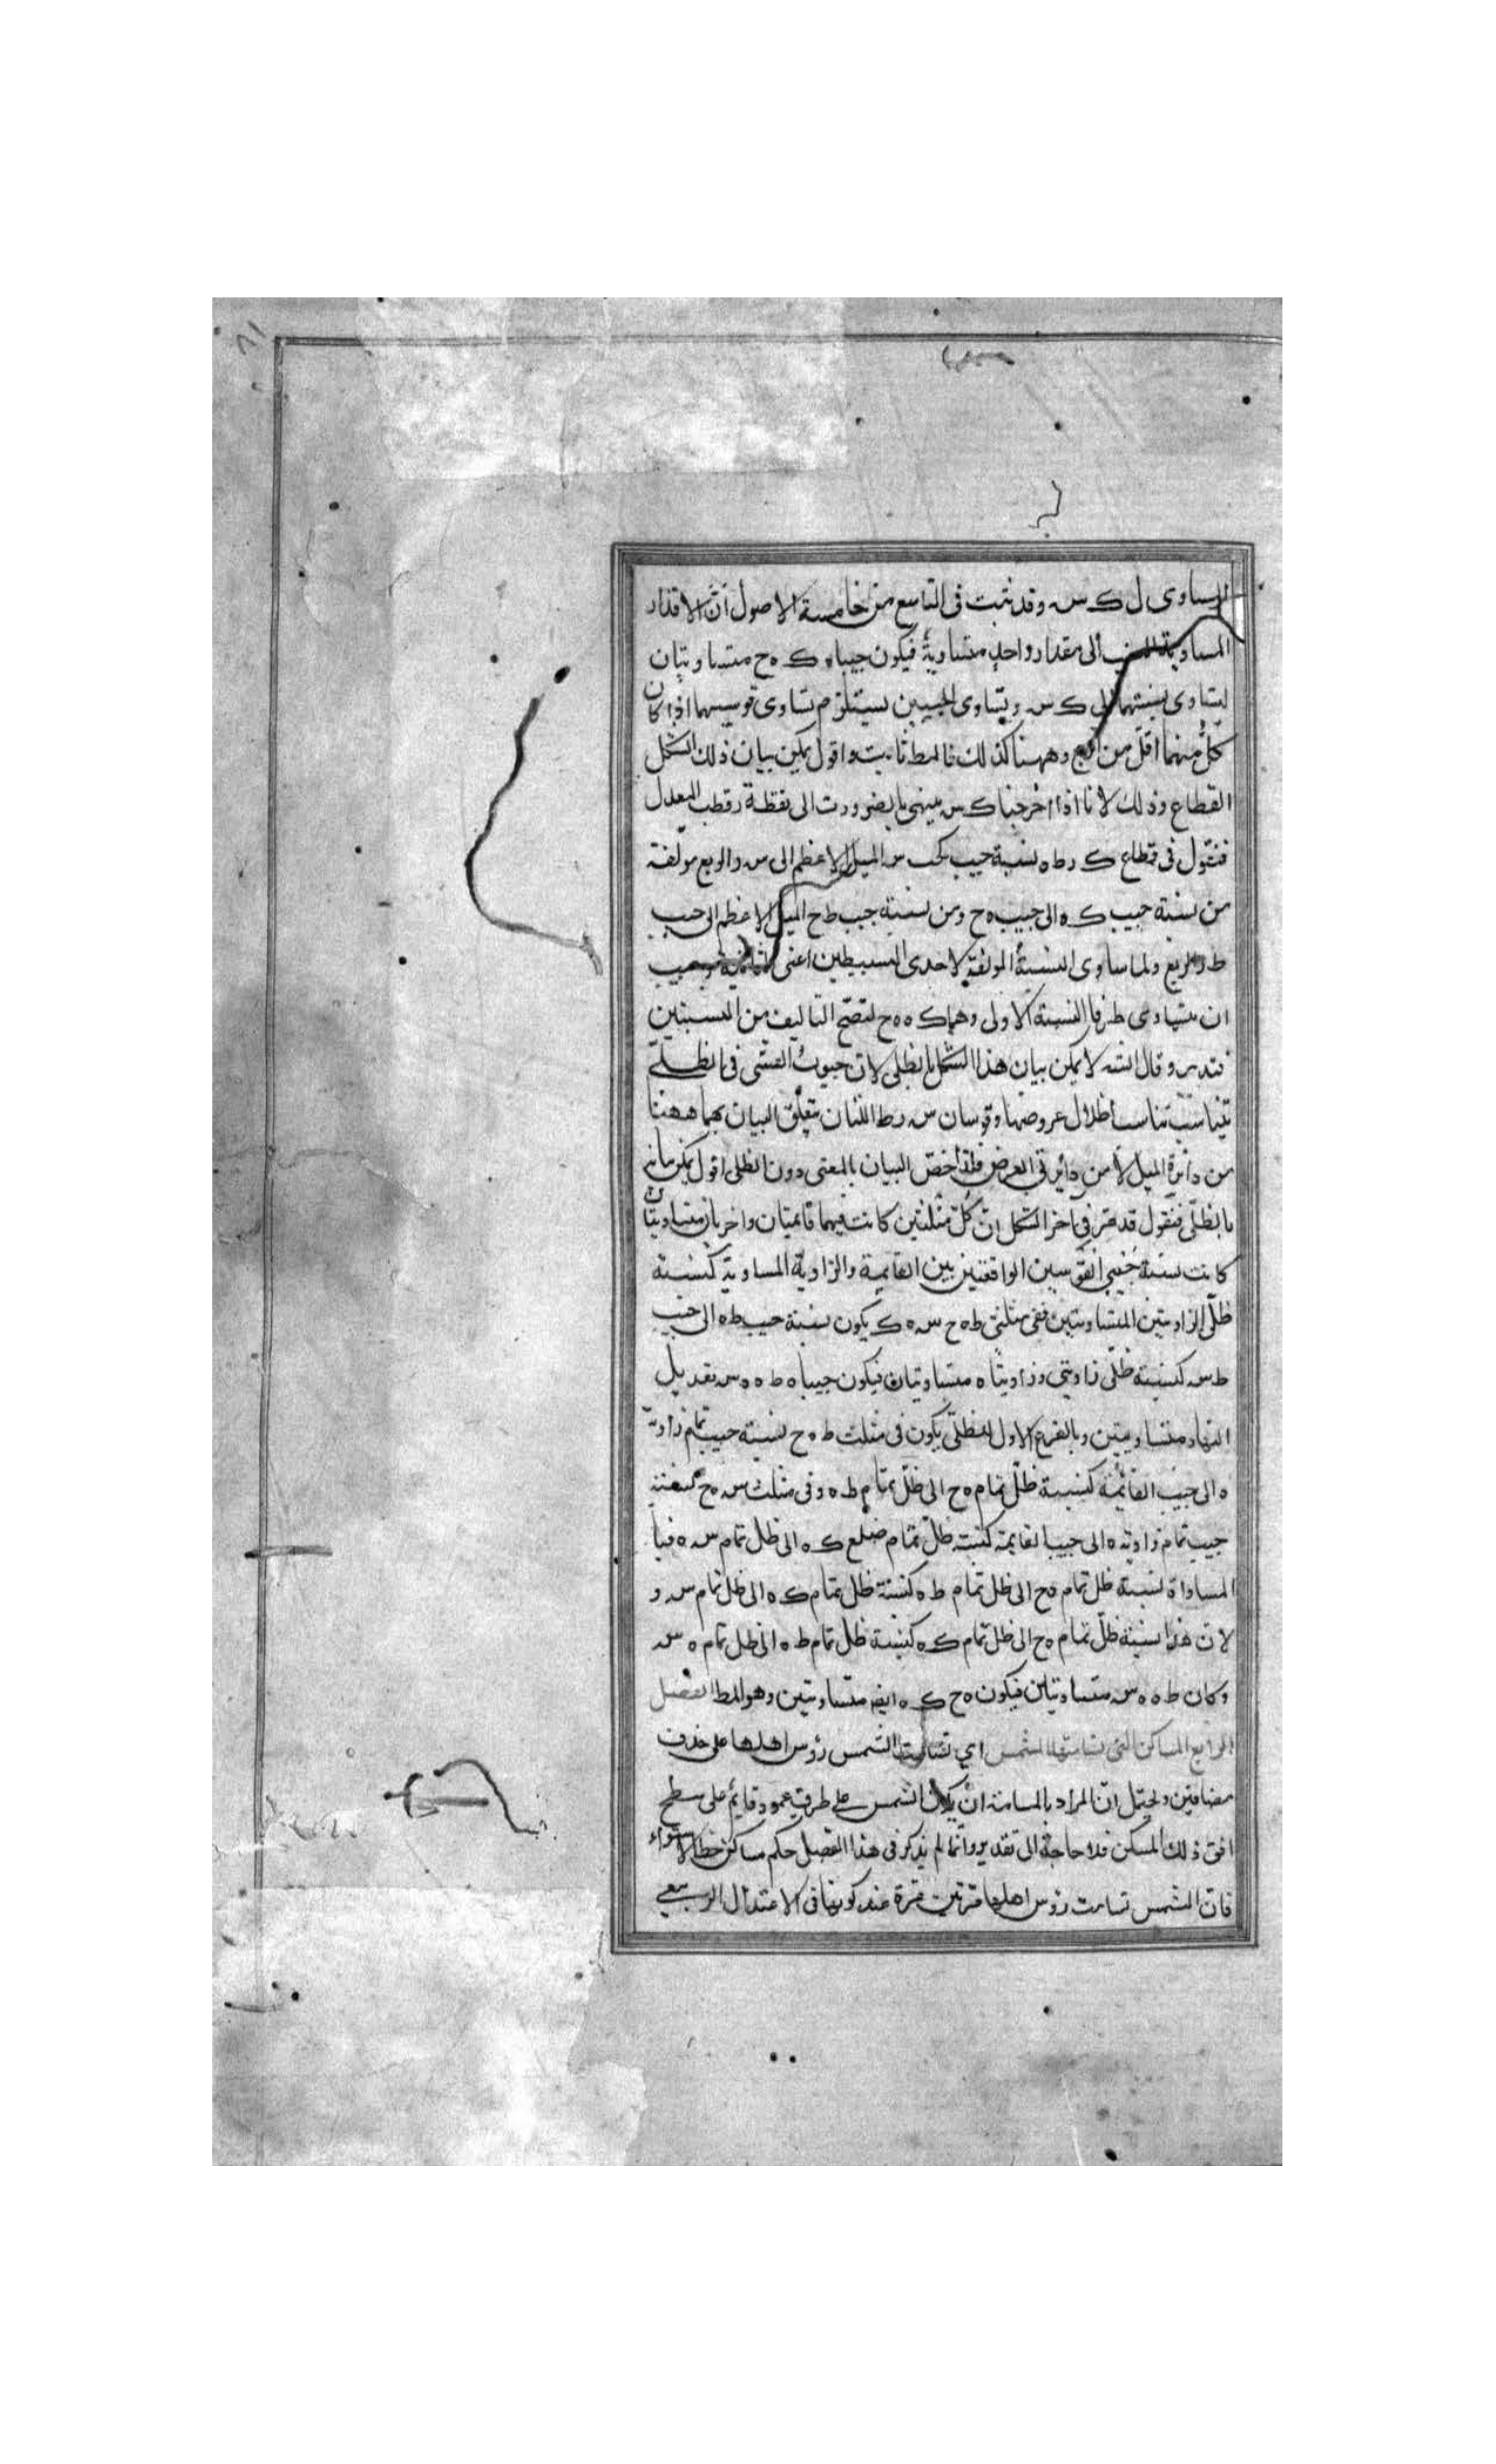 المساوى ل ك س وقد ثبت فى التاسع من خامسة الاصول انّ الاقدار
المساوية الى مقدار واحد متساوية فيكون جيبا ه ك ه ح متساويتان
لتساوى نسبتهما الى ك س وتساوى الجيبين يستلزم تساوى قوسيهما اذا كان
كلّ منهما اقلّ من وههنا كذلك فالمط ثابت واقول يمكن بيان ذلك الشكل
القطاع وذلك لانا اذا اخرجنا ك س ينتهى بالضرورت الى نقطة ر قطب المعدل
فنقول فى قطاع ك ر ط ه نسبة جيب س الميل الاعظم الى س ر الربع مؤلفة
من نسبة جيب ك ه الى جيب ه ح ومن نسبة جيب ط ح الميل الاعظم الى جيب
ط ر الربع ولما ساوى النسبة المولفة لاحدى البسيطين اعنى الثانية
ان يتساوى طرفا النسبة الاولى وهما ك ه ه ح لتصحّ التاليف من النسبتين
فتدبر وقال الشه لا يمكن بيان هذا الشكل بالظلى لانّ جيوب القسّى فى الظلّى
تتناسب تناسب اظلال عروضها وقوسان س ر ط اللتان يتعلّق البيان بهما ههنا
من دائرة الميل لا من دائرتى العرض فلذا خصّ البيان بالمعنى دون الظلى اقول يمكن بيانه
بالظلّى فنقول قد مرّ فى اخر الشكل انّ كلّ مثلثين كانت فيهما قائمتان واخريان متساويتان
كانت نسبة جيبى القوسين الواقعتين بين القايمة والزاوية المساوية كنسبة
ظلّى الزاويتين المتساويتين ففى مثلثى ط ه ح س ه ك يكون نسبة جيب ط ه الى جيب
ط س كنسبة ظلّى زاويتى وزاويتا ه متساويتان فيكون جيبا ه ط ه ه س تعديل
النهار متساويتين وبالفرع الاول للظلّى يكون فى مثلث ط ه ح نسبة جيب تمام زاوية
ه الى جيب القائمة كنسبة ظلّ تمام ه ح الى ظلّ تمام ط ه وفى مثلث س ه ح كنسبة
جيب تمام زاوية ه الى جيب القايمة كنسبة ظلّ تمام ضلع ك ه الى ظل تمام س ه فبا
المساواة نسبة ظل تمام ه ح الى ظل تمام ط ه كنسبة ظل تمام ك ه الى ظل تمام س و
لان هذا نسبة ظلّ تمام ه ح الى ظل تمام ك ه كنسبة ظل تمام ط ه الى ظل تمام ه س
وكان ط ه ه س متساويتان فيكون ه ح ك ه ايضا متساويتين وهو المط الفصل
الرابع المساكن التى تسامتها الشمس اى تسامت الشمس رؤس اهلها على حذف
مضافين ويحتمل انّ المراد بالمسامتة ان يكون الشمس على طرف عمود قايم على سطح
افق ذلك المسكن فلا حاجة الى تقدير وانّما لم يذكر فى هذا الفصل حكم مساكن خط الاستواء
فانّ الشمس تسامت رؤس اهلها مرّتين مرة عند كونها فى الاعتدال الربيعى